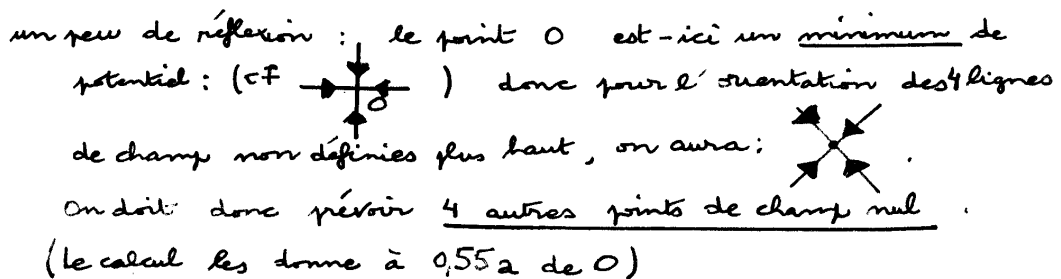 un peu de réflexion : le point O est-ici un minimum de
potentiel : (cf O ) donc pour l'orientation des 4 lignes
de champ non définies plus haut, on aura : .
On doit donc prévoir 4 autres points de champ nul .
(le calcul les donne à 0,55a de O)